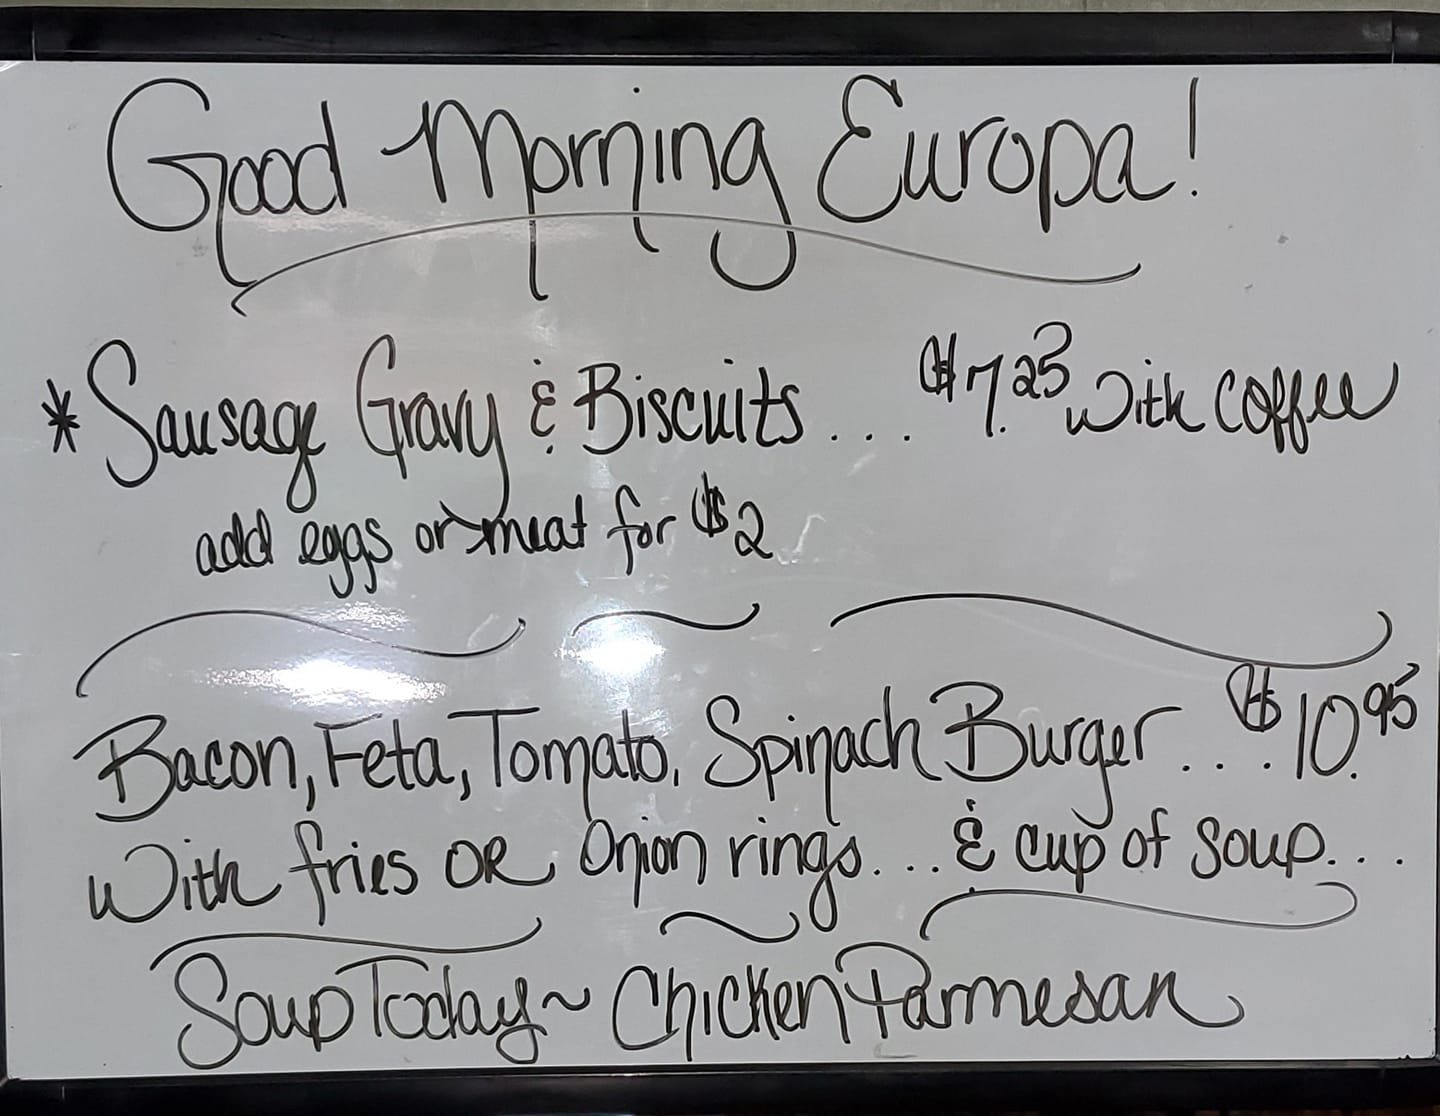 Good Morning Europa!
* Sausage Gravy & Biscuits.... $7.25 with coffee
add eggs or meat for $2
Bacon, Feta, Tomato, Spinach Burger.... $10.95
with fries OR Onion rings... & cup of soup...
Soup Today ~ Chicken Parmesan